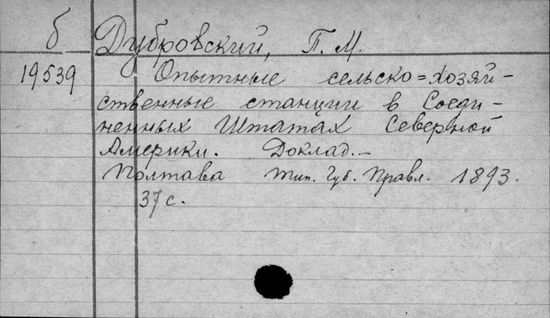 б
Дубровский, П. М.
19539
Опытные сельско=хозяй-
ственные станции в Соеди-
ненных Штатах Северной
Америки. Доклад.-
Полтава Тип. Губ. Правл. 1893.
37 с.